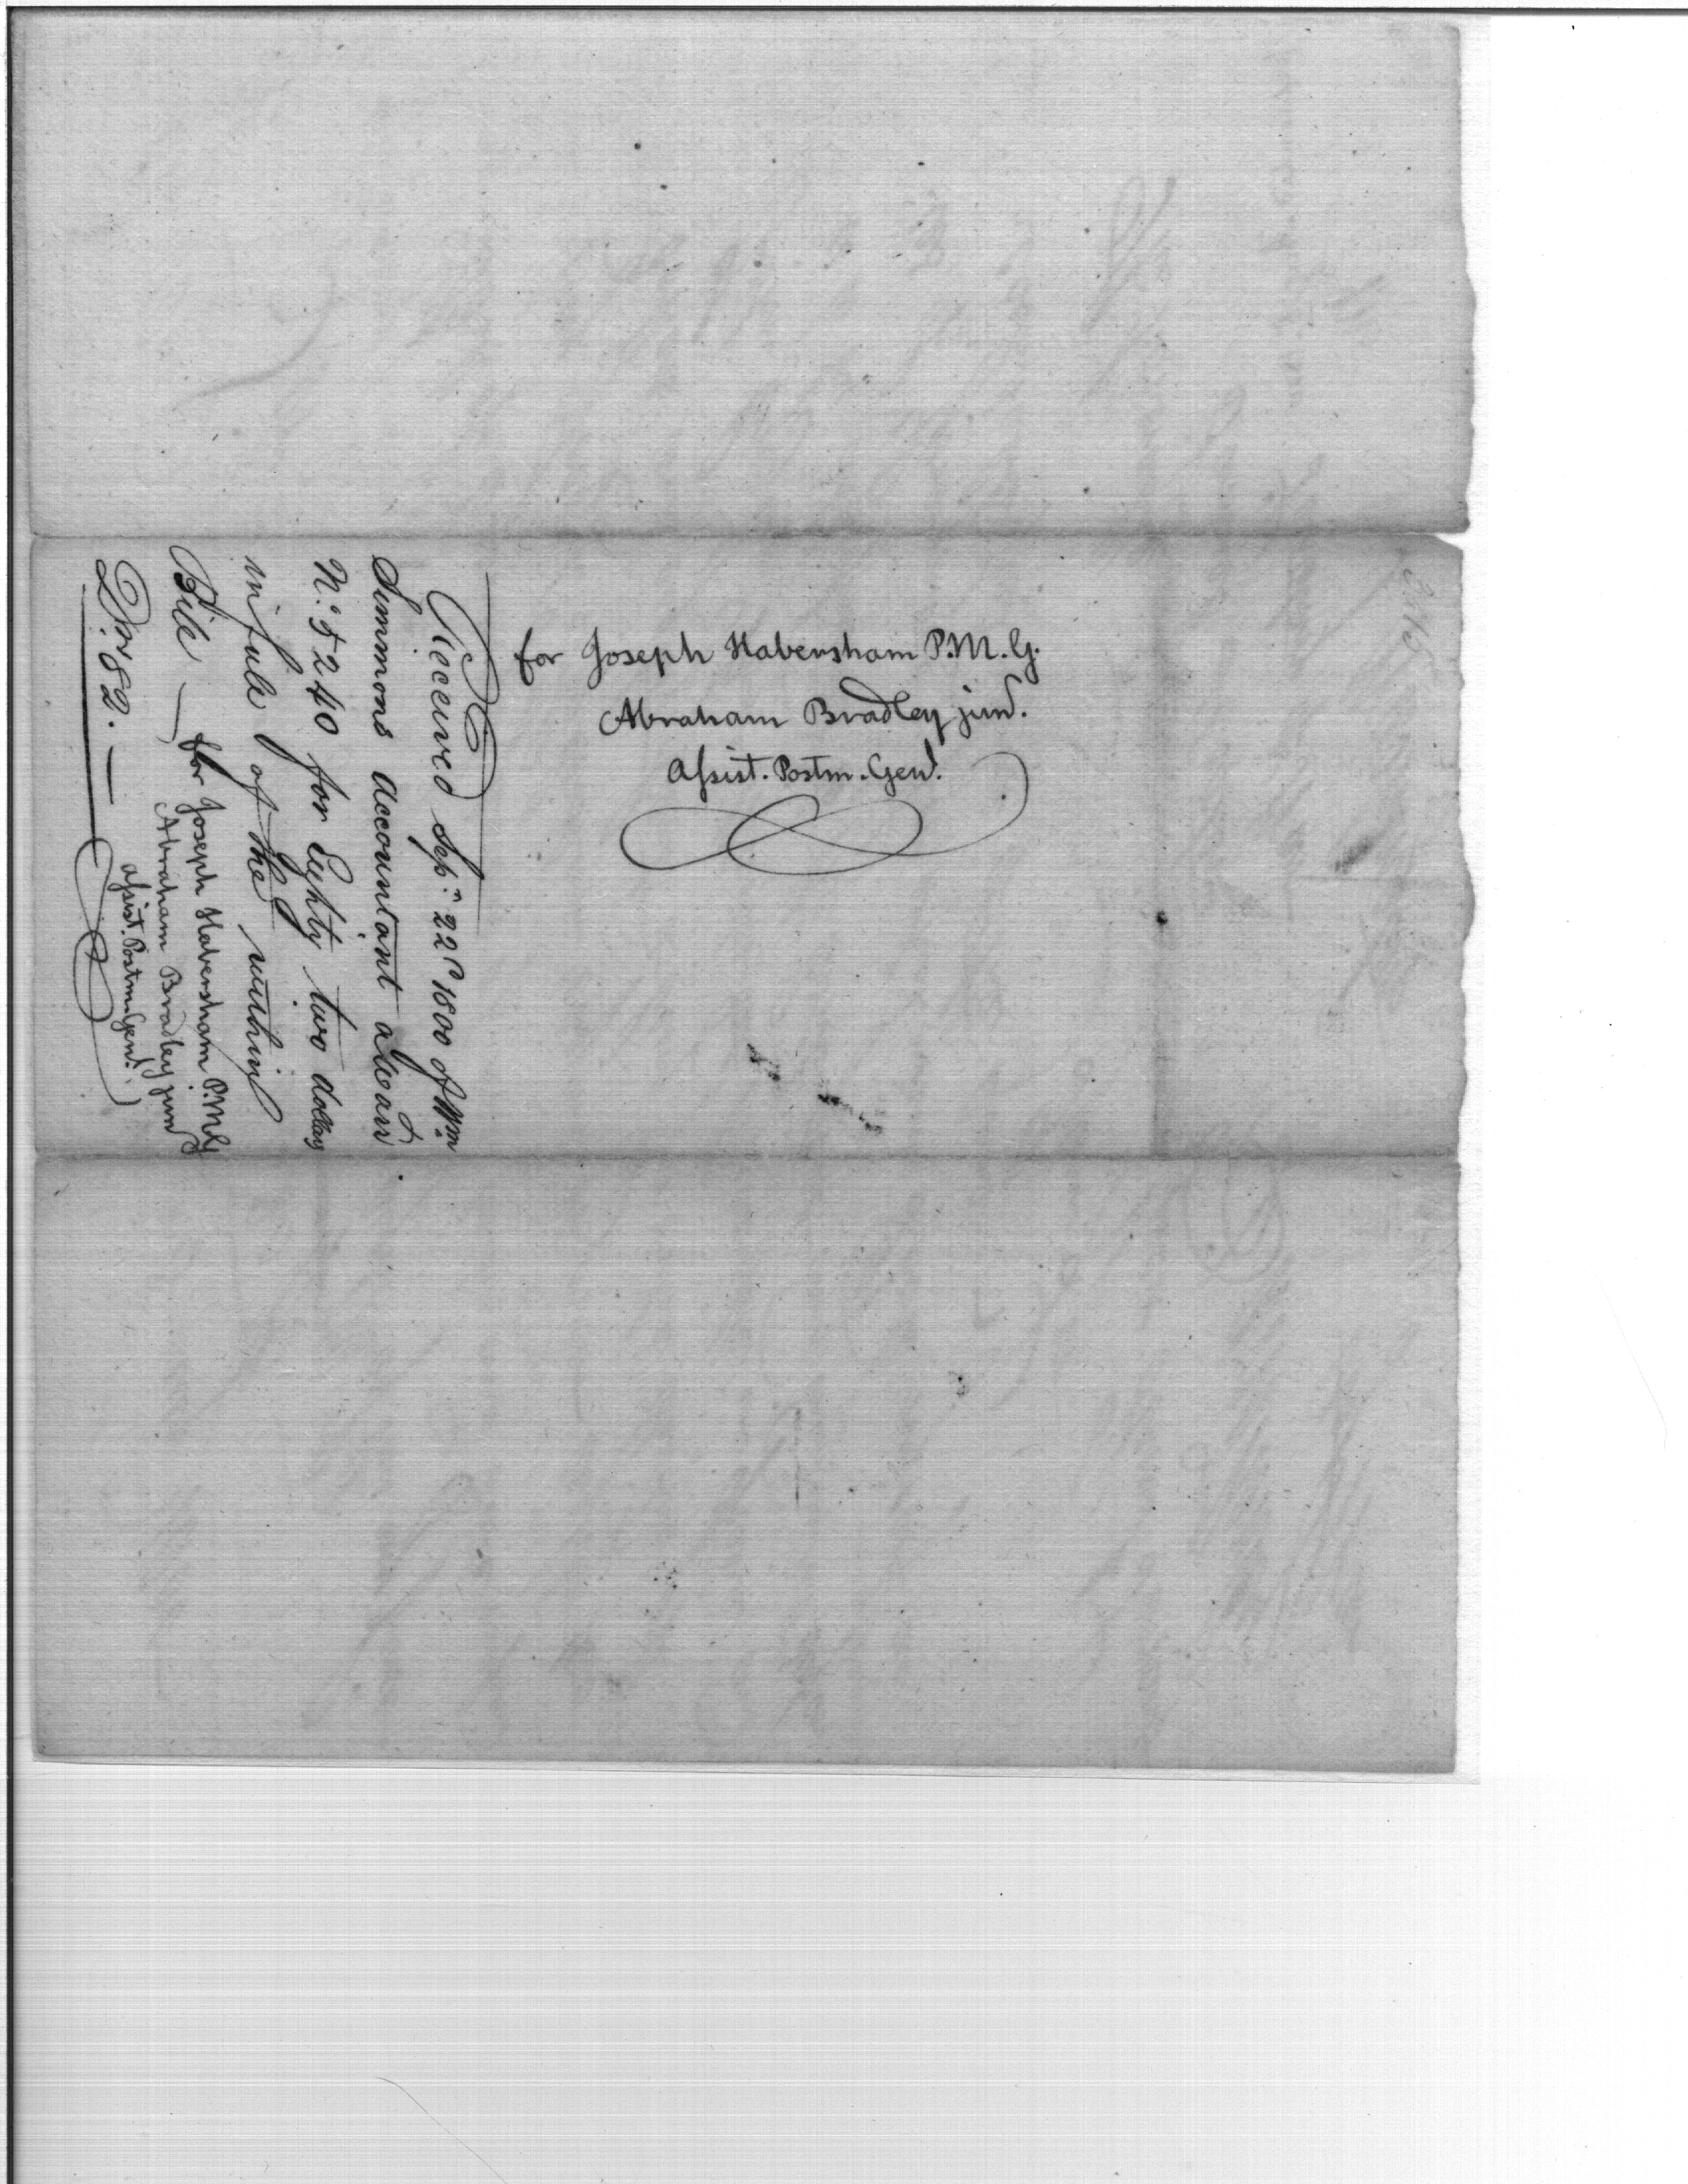 for Joseph Habersham P.M.G.
Abraham Bradley junr.
Assist. Postm. Genl.
Received Sepr. 22d 1800 of Wm.
Simmons Accountant a Warr
No. 5240 for Eighty two dollars
in full of the within
Bill — for Joseph Habersham P.M.G
Abraham Bradley junr
Assist. Postm. Genl.
Drs 82. —